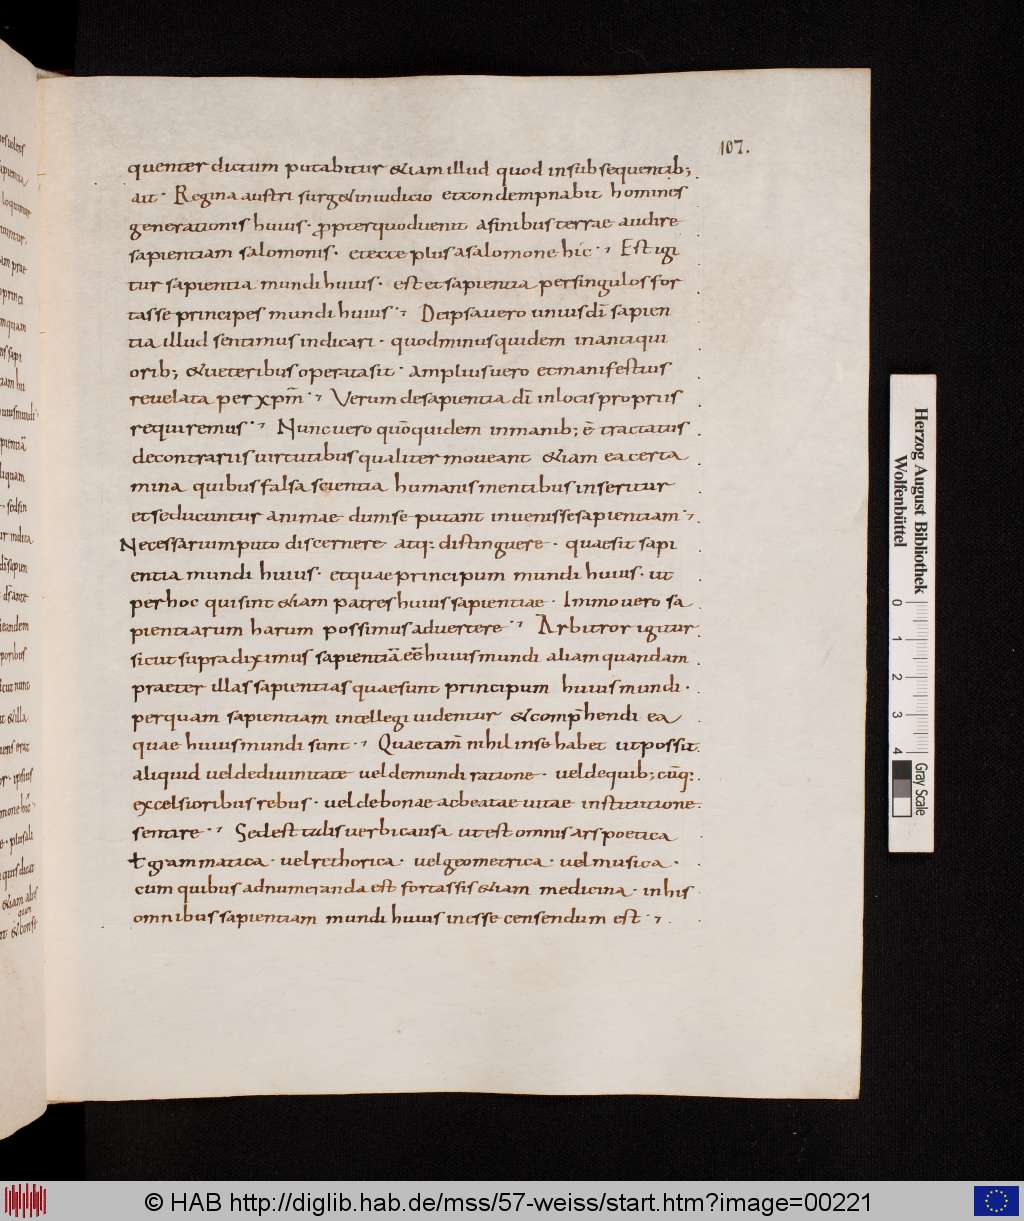 107.
quenter dictum putabitur &iam illud quod insubsequentib;
ait· Regina austri surg&iniudicio etcondempnabit homines
generationis huius· ꝓpterquoduenit afinibusterrae audire
sapientiam salomonis· etecce plusasalomone hic·⁊ Est igi
tur sapientia mundihuius· est etsapientia persingulosfor
tasse principes mundi huius·⁊ Deipsauero uniusdī sapien
tia illud sentimus indicari· quodminusquidem inantiqui
orib; &ueteribusoperatasit· ampliusuero etmanifestius
reuelata per xpm̄·⁊ Verum desapientia dī inlocispropriis
requiremus·⁊ Nuncuero quōquidem inmanib; ē tractatus
decontrariisuirtutibusqualiter moueant &iam eacerta
mina quibusfalsa scientia humanismentibusinseritur
etseducuntur animae dumse putant inuenissesapientiam·⁊
Necessariumputo discernere atq: distinguere· quaesit sapi
entia mundi huius· etquaeprincipum mundi huius· ut
perhoc quisint &iam patreshuiussapientiae· Immouero sa
pientiarum harum possimusaduertere·⁊ Arbitror igitur
sicutsupradiximus sapientiā eē huiusmundi aliamquandam
praeter illassapientiasquaesunt principum huiusmundi·
perquam sapientiam intellegi uidentur &comp̄hendi ea
quae huiusmundi sunt·⁊ Quaetam̄ nihil inse habet utpossit
aliquidueldediuinitate ueldemundi ratione· ueldequib;cūq:
excelsioribusrebus· ueldebonae acbeatae uitae institutione
sentire·⁊ Sedest talisuerbicausa utest omnis arspoetica
ł grammatica· uelrethorica· uelgeometrica· uelmusica·
cum quibus adnumeranda est fortassis &iam medicina· inhis
omnibussapientiam mundi huius inesse censendum est·⁊
Herzog August Bibliothek
Wolfenbüttel
0 1 2 3 4
Gray Scale
© HAB http://diglib.hab.de/mss/57-weiss/start.htm?image=00221